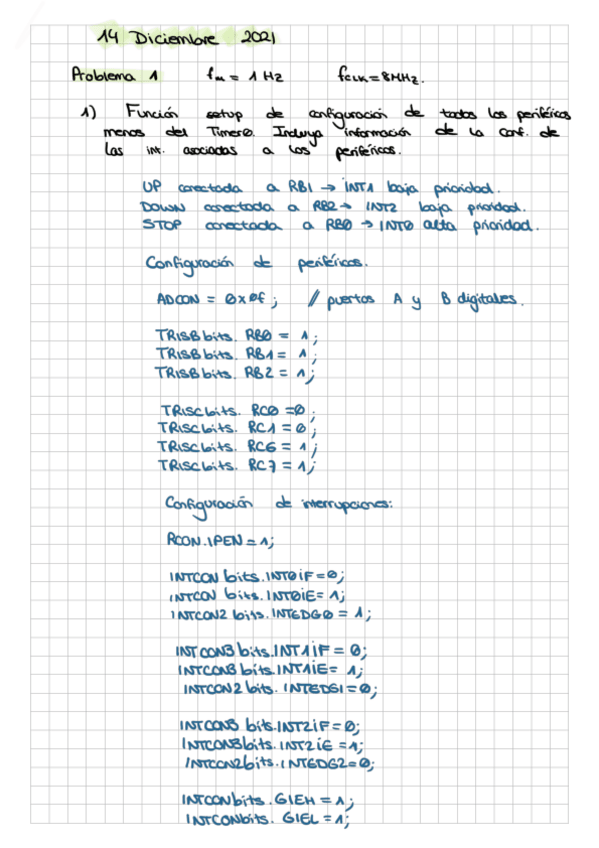 14 Diciembre 2021
Problema 1 fm = 1 Hz fCLK = 8MHz.
1) Función setup de configuración de todos los periféricos
menos del Timer0. Incluya información de la conf. de
las int. asociadas a los periféricos.
UP conectada a RB1 → INT1 baja prioridad.
DOWN conectada a RB2 → INT2 baja prioridad.
STOP conectada a RB0 → INT0 alta prioridad.
Configuración de periféricos.
ADCON = 0x0f; // puertos A y B digitales.
TRISBbits. RB0 = 1;
TRISBbits. RB1 = 1;
TRISBbits. RB2 = 1;
TRISCbits. RC0 = 0;
TRISCbits. RC1 = 0;
TRISCbits. RC6 = 1;
TRISCbits. RC7 = 1;
Configuración de interrupciones:
RCON.IPEN = 1;
INTCON bits.INT0iF = 0;
INTCON bits.INT0iE = 1;
INTCON2 bits.INTEDG0 = 1;
INTCON3 bits.INT1iF = 0;
INTCON3 bits.INT1iE = 1;
INTCON2 bits. INTEDG1 = 0;
INTCON3 bits.INT2iF = 0;
INTCON3bits.INT2iE = 1;
INTCON2bits.INTEDG2 = 0;
INTCONbits.GIEH = 1;
INTCONbits. GIEL = 1;